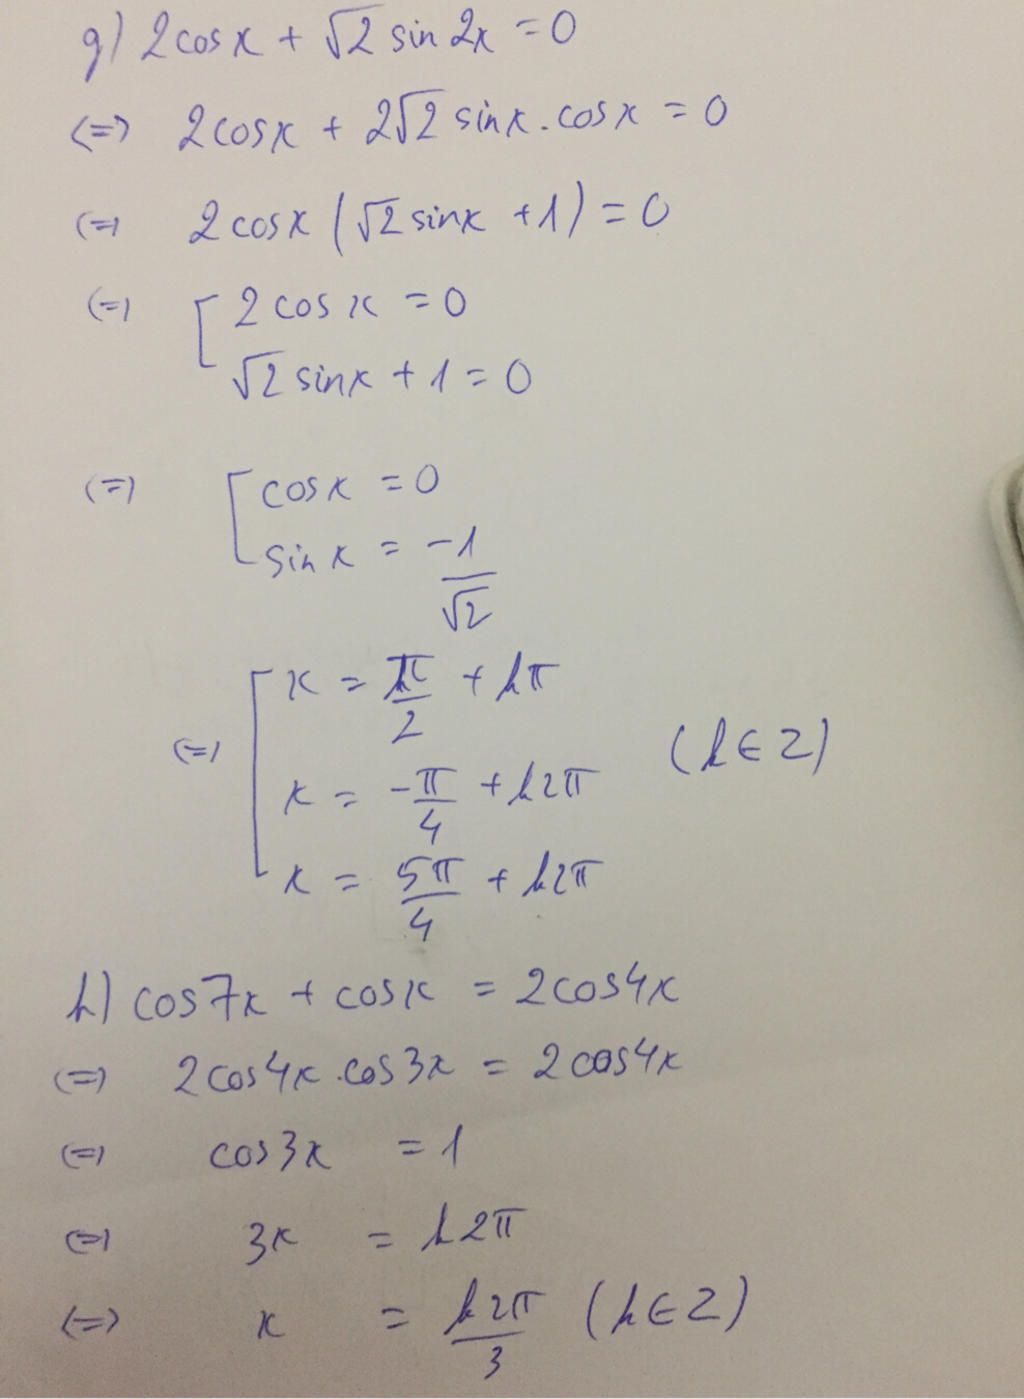 g) 2cosx + √2 sin 2x = 0
<=> 2cosx + 2√2 sinx . cosx = 0
<=> 2cosx (√2 sinx + 1) = 0
<=> [ 2cosx = 0
√2 sinx + 1 = 0
<=> [ cosx = 0
sinx = -1/√2
<=> [ x = π/2 + kπ
x = -π/4 + k2π (k∈Z)
x = 5π/4 + k2π
h) cos7x + cosx = 2cos4x
<=> 2cos4x . cos3x = 2cos4x
<=> cos3x = 1
<=> 3x = k2π
<=> x = k2π/3 (k∈Z)